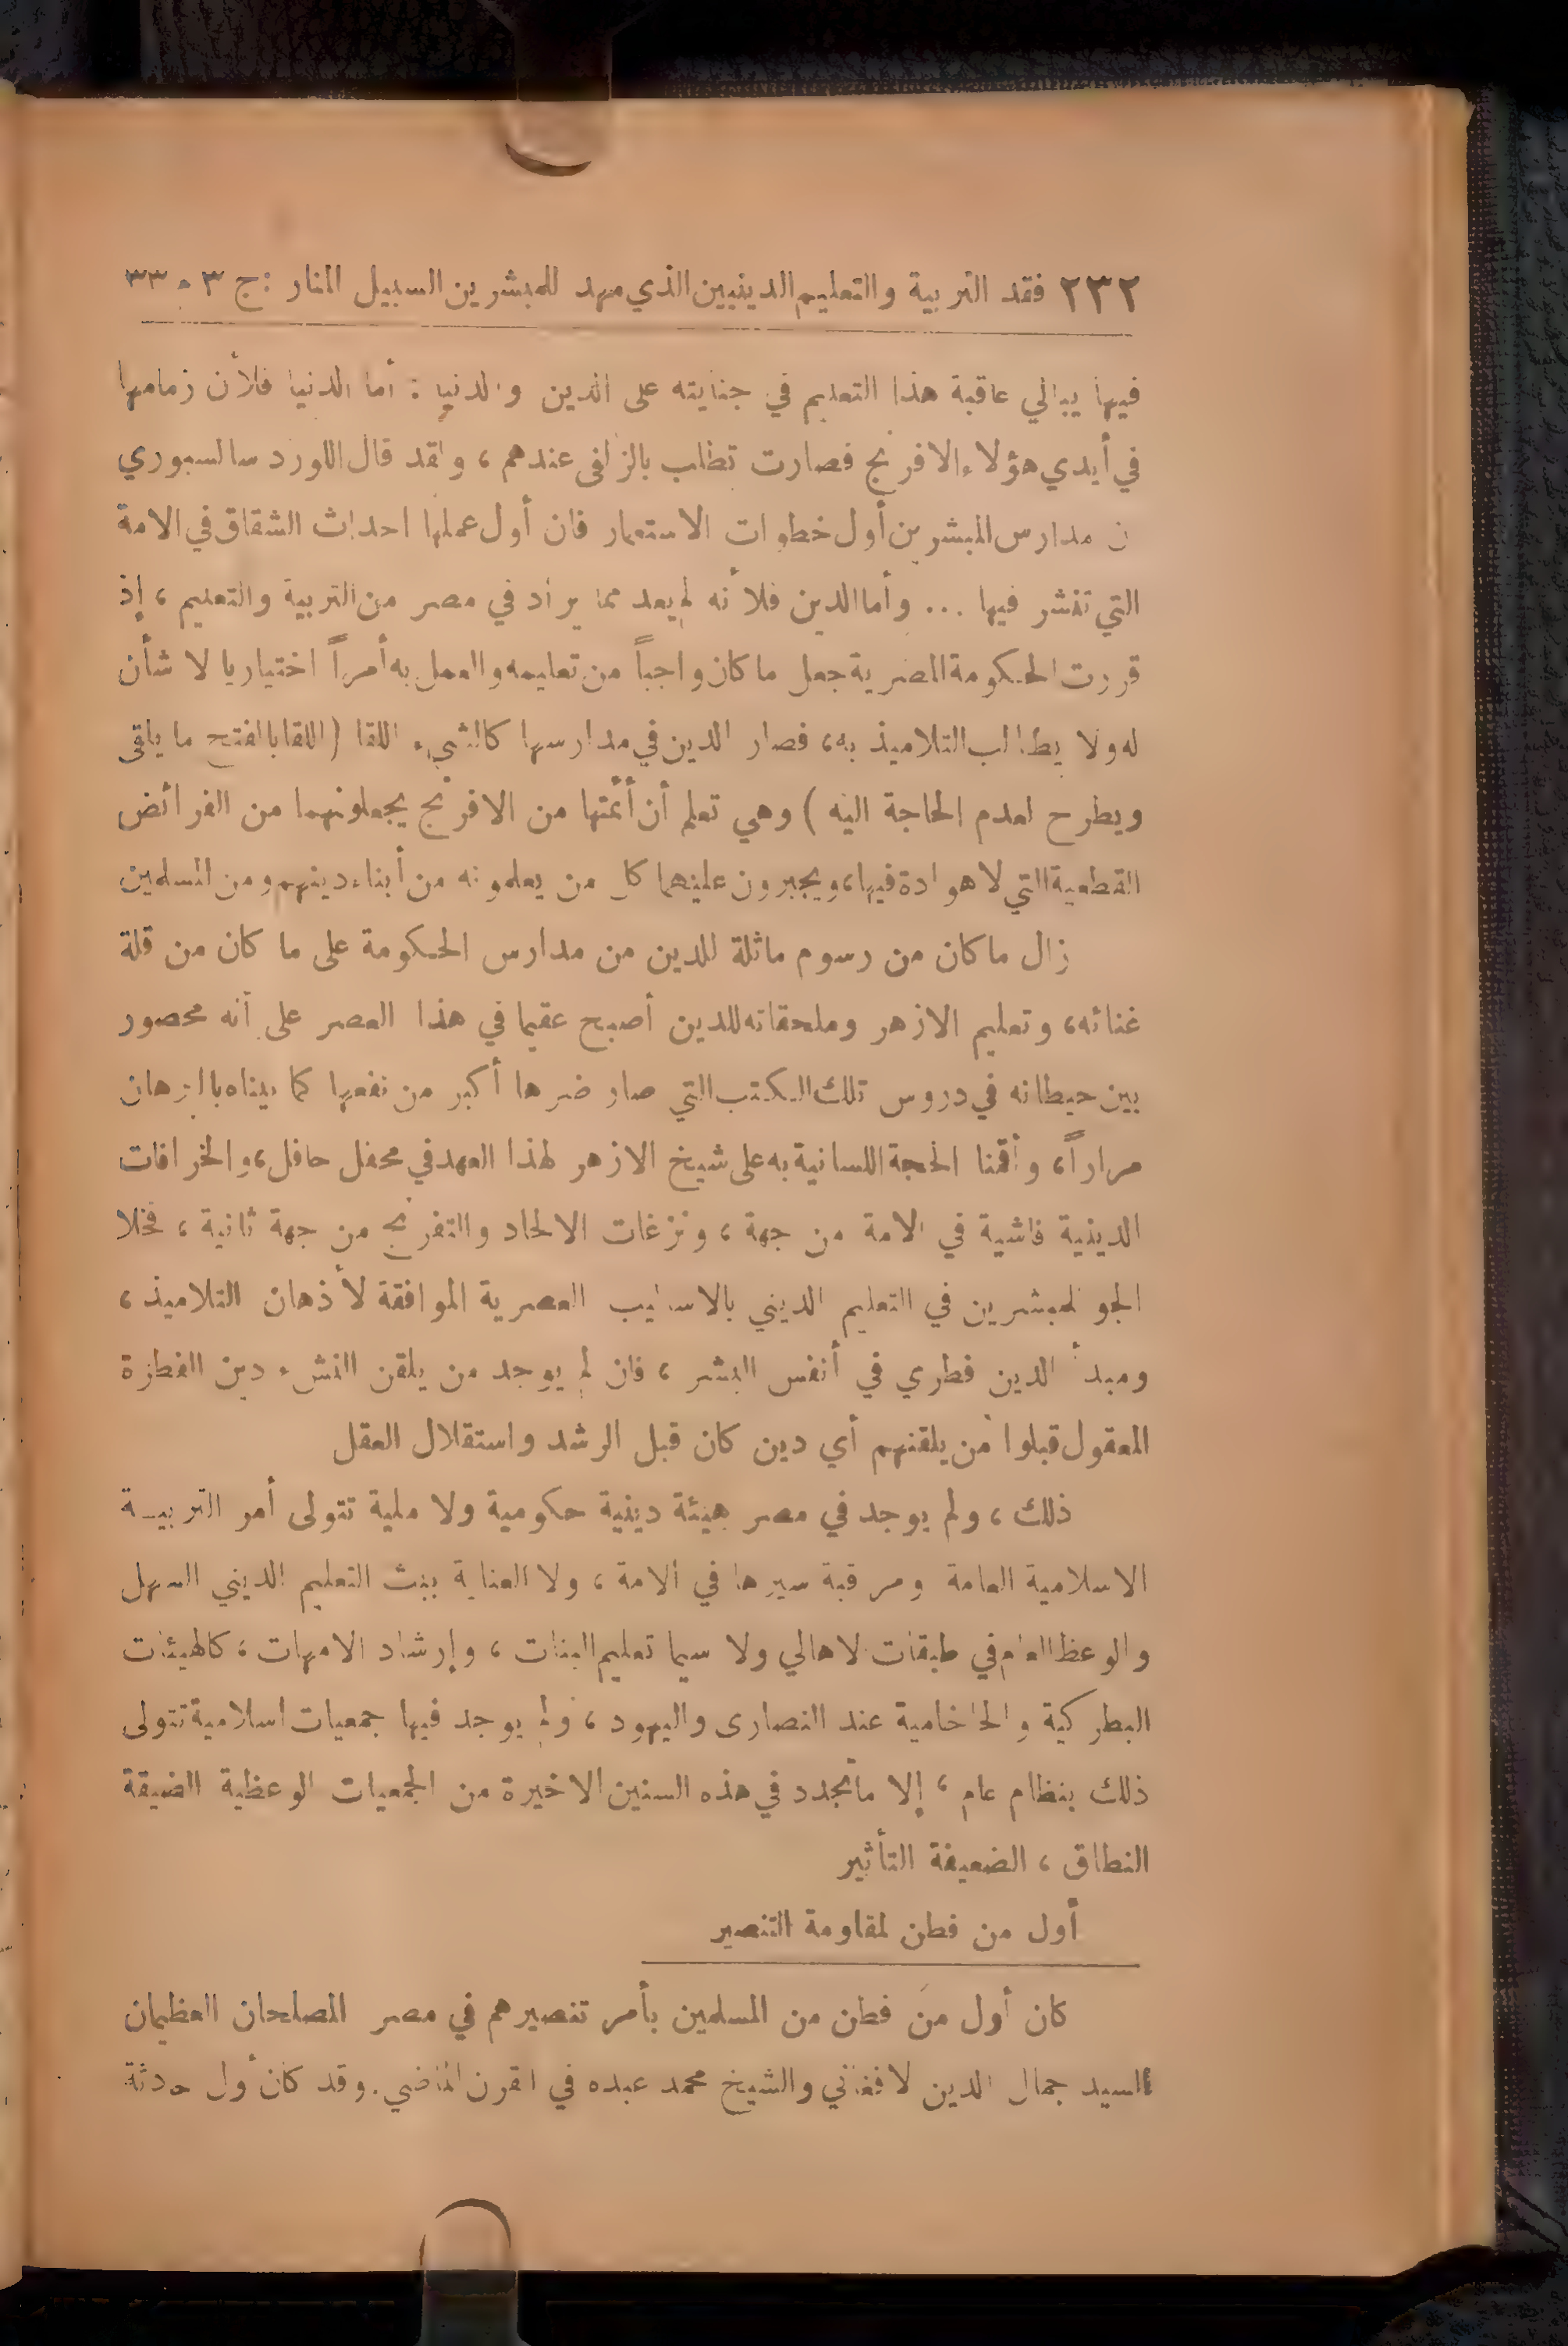 ٢٣٢ فقد التربية والتعليم الدينيين الذي مهد للمبشرين السبيل المنار : ج ٣ م ٣٣
فيها يبالي عاقبة هذا التعليم في جنايته على الدين والدنيا : أما الدنيا فلأن زمامها
في أيدي هؤلاء الافرنج فصارت تطلب بالزلفى عندهم ، ولقد قال اللورد سالسبوري
ن مدارس المبشرين أول خطوات الاستعمار فان أول عملها احداث الشقاق في الامة
التي تنشر فيها ... وأما الدين فلأنه لم يعد مما يراد في مصر من التربية والتعليم ، إذ
قررت الحكومة المصرية جعل ما كان واجباً من تعليمه والعمل به أمراً اختياريا لا شأن
له ولا يطالب التلاميذ به ، فصار الدين في مدارسها كالشيء اللقا ( اللقا بالفتح ما يلقى
ويطرح لعدم الحاجة اليه ) وهي تعلم أن أئمتها من الافرنج يجعلونهما من الفرائض
القطعية التي لا هوادة فيها ، ويجبرون عليهما كل من يعلمونه من أبناء دينهم ومن المسلمين
زال ما كان من رسوم ماثلة للدين من مدارس الحكومة على ما كان من قلة
غنائه ، وتعليم الازهر وملحقاته للدين أصبح عقيما في هذا العصر على أنه محصور
بين حيطانه في دروس تلك الكتب التي صار ضرها أكبر من نفعها كما بيناه بالبرهان
مراراً ، وأقمنا الحجة اللسانية به على شيخ الازهر لهذا العهد في محفل حافل ، والخرافات
الدينية فاشية في الامة من جهة ، ونزغات الالحاد والتفرنج من جهة ثانية ، فخلا
الجو للمبشرين في التعليم الديني بالاساليب العصرية الموافقة لأذهان التلاميذ ،
ومبدأ الدين فطري في أنفس البشر ، فان لم يوجد من يلقن النشء دين الفطرة
المعقول قبلوا من يلقنهم أي دين كان قبل الرشد واستقلال العقل
ذلك ، ولم يوجد في مصر هيئة دينية حكومية ولا ملية تتولى أمر التربيـة
الاسلامية العامة ومراقبة سيرها في الامة ، ولا العناية ببث التعليم الديني السهل
والوعظ العام في طبقات الاهالي ولا سيما تعليم البنات ، وإرشاد الامهات ، كالهيئات
البطركية والحاخامية عند النصارى واليهود ، ولم يوجد فيها جمعيات اسلامية تتولى
ذلك بنظام عام ، إلا ما تجدد في هذه السنين الاخيرة من الجمعيات الوعظية الضيقة
النطاق ، الضعيفة التأثير
أول من فطن لمقاومة التنصير
كان أول من فطن من المسلمين بأمر تنصيرهم في مصر المصلحان العظيمان
السيد جمال الدين الافغاني والشيخ محمد عبده في القرن الماضي . وقد كان أول حادثة